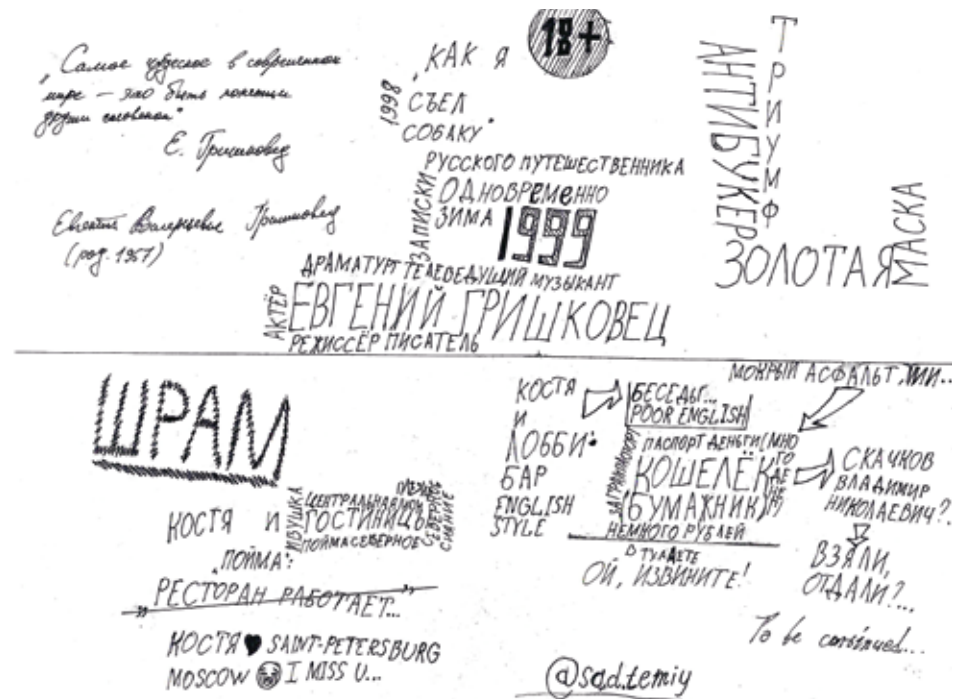 „Самое чудесное в современном
мире — это быть
другим человеком"
Е. Гришковец
Евгений Валерьевич Гришковец
(род. 1967)
18+
„КАК Я
СЪЕЛ
СОБАКУ"
1998
ЗАПИСКИ
РУССКОГО ПУТЕШЕСТВЕННИКА
ОДНОВРЕМЕННО
ЗИМА
1999
ДРАМАТУРГ ТЕЛЕВЕДУЩИЙ МУЗЫКАНТ
АКТЁР
ЕВГЕНИЙ ГРИШКОВЕЦ
РЕЖИССЁР ПИСАТЕЛЬ
АНТИБУКЕР
ТРИУМФ
ЗОЛОТАЯ
МАСКА
ШРАМ
КОСТЯ И
ИВУШКА
ЦЕНТРАЛЬНАЯ
ГОСТИНИЦЫ
ПОЙМА СЕВЕРНОЕ
СЕВЕРНОЕ
СИЯНИЕ
„ПОЙМА":
„РЕСТОРАН РАБОТАЕТ..."
КОСТЯ ♥ SAINT-PETERSBURG
MOSCOW 😭 I MISS U...
КОСТЯ
И
ЛОББИ-
БАР
ENGLISH
STYLE
БЕСЕДЫ...
POOR ENGLISH
МОКРЫЙ АСФАЛЬТ,
ПАСПОРТ ДЕНЬГИ(МНО
КОШЕЛЁК
(БУМАЖНИК)
НЕМНОГО РУБЛЕЙ
В ТУАЛЕТЕ
ОЙ, ИЗВИНИТЕ!
СКАЧКОВ
ВЛАДИМИР
НИКОЛАЕВИЧ?
ВЗЯЛИ,
ОТДАЛИ?...
To be continued...
@sad.temiy